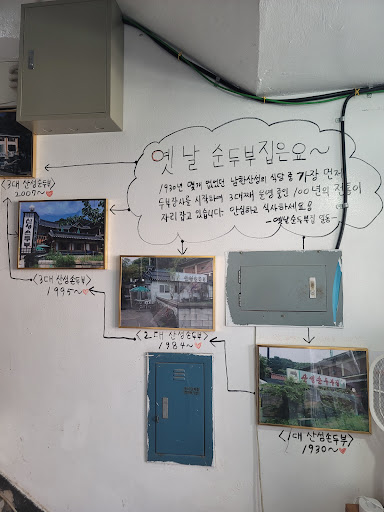 옛날 순두부집은요~
1930년 몇개 없었던 남한산성의 식당 중 가장 먼저
두부장사를 시작하여 3대째 운영중인 100년의 전통이
자리 잡고 있습니다. 안심하고 식사하세요
-옛날순두부집 일동-
<3대 산성순두부>
2007~
<3대 산성순두부>
1995~
<2대 산성순두부>
1984~
<1대 산성순두부>
1930~